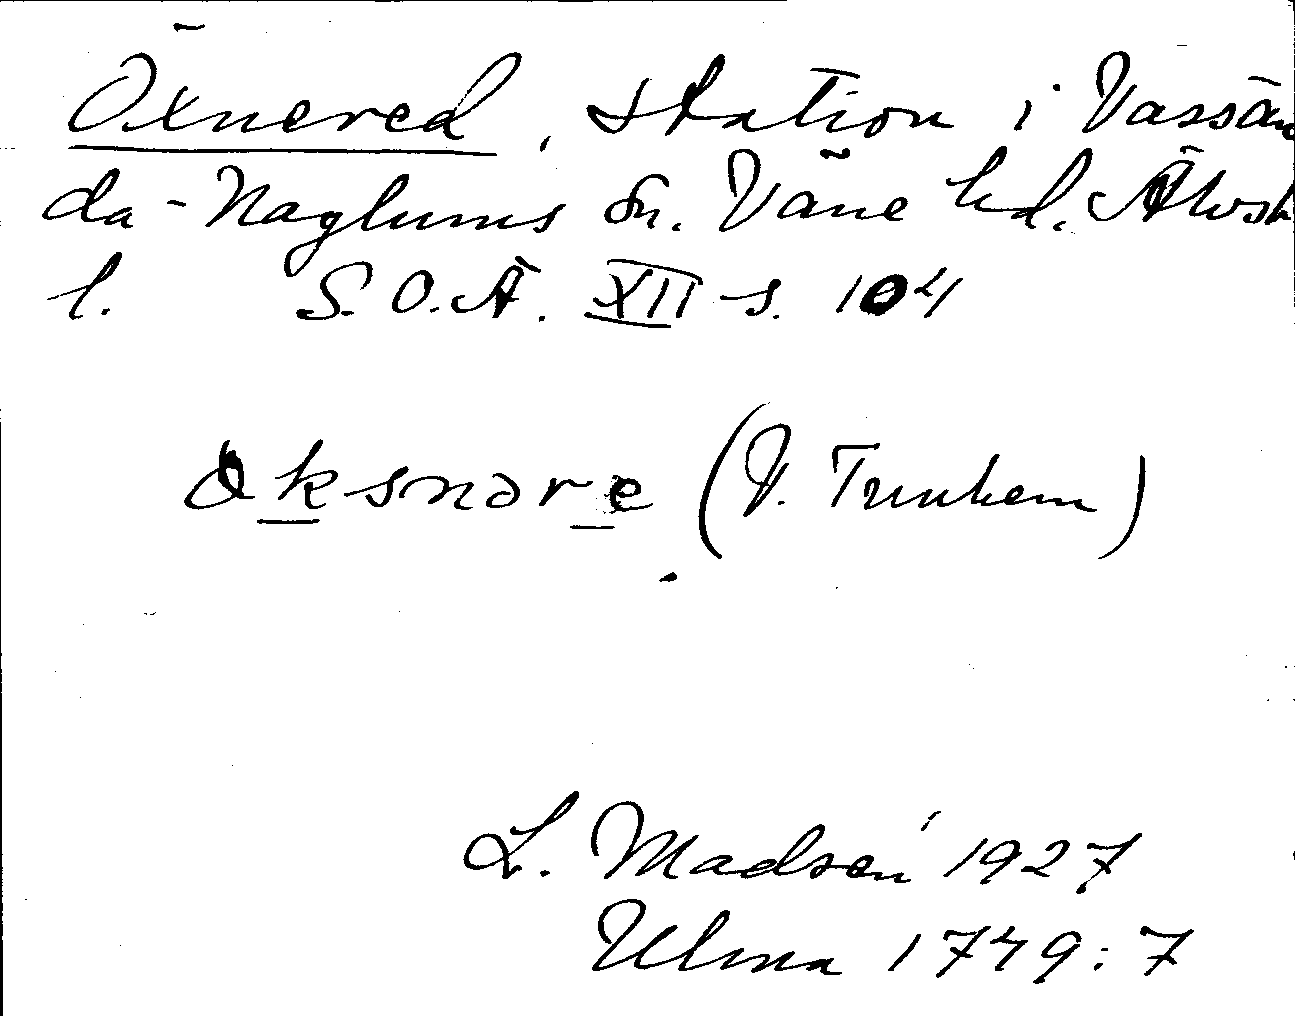 Öxnered, station i Vassän
da-Naglums sn. Väne hd. Älvsb
l. S.O.Ä. XII s. 104
öksnəre (V. Tunhem)
L. Madsén 1927
Ulma 1749:7